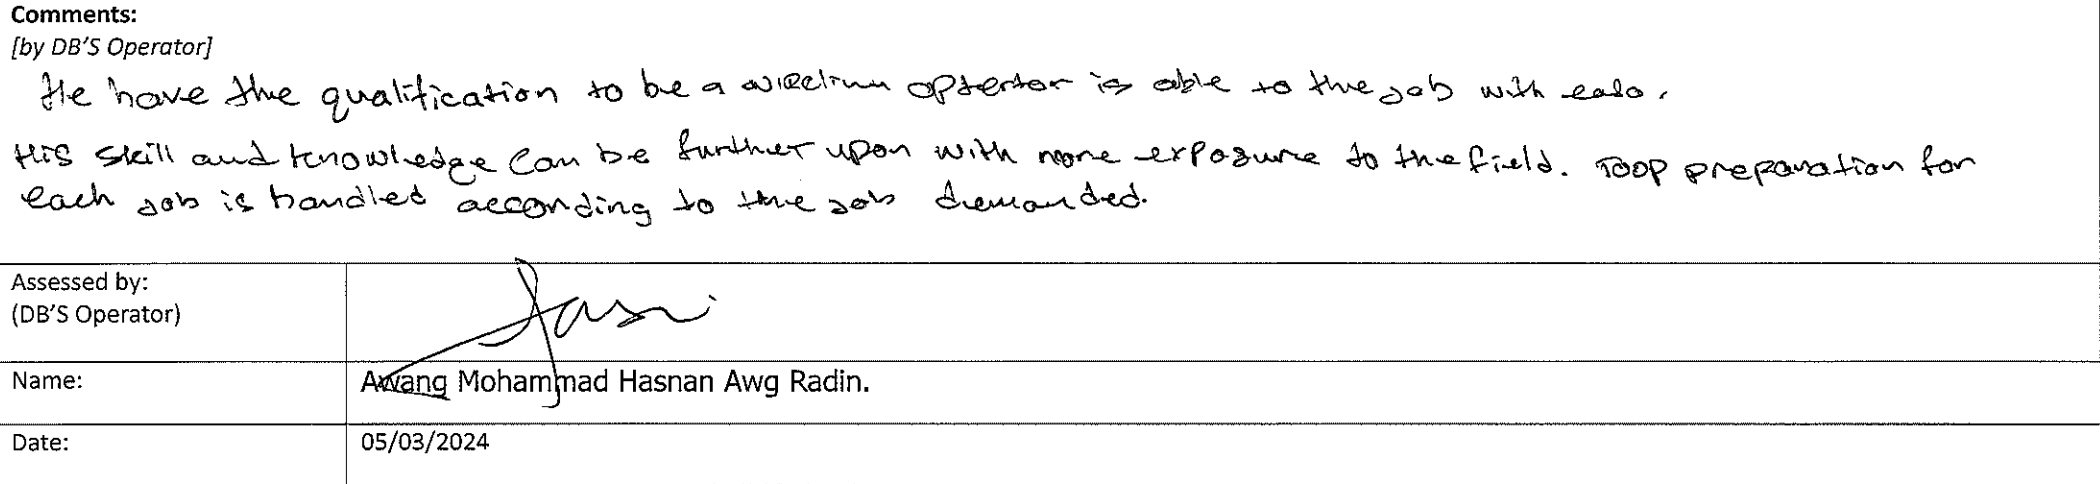 Comments:
[by DB'S Operator]
He have the qualification to be a wireline optertor is able to the job with ease.
His skill and knowledge can be further upon with more exposure to the field. Toop preparation for
each job is handled according to the job demanded.
Assessed by:
(DB'S Operator)
Name: Awang Mohammad Hasnan Awg Radin.
Date: 05/03/2024